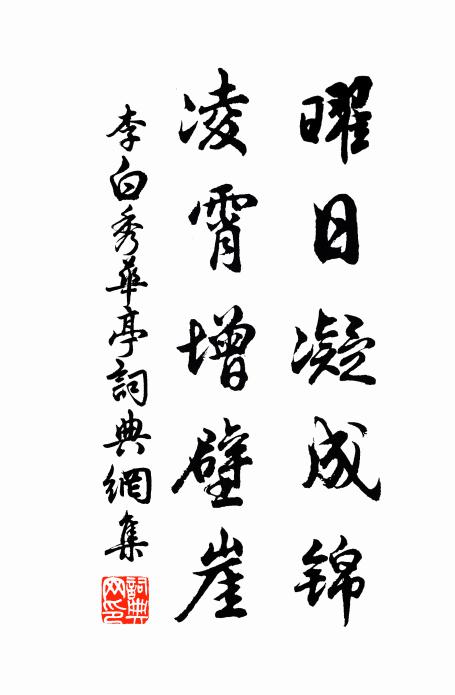 曜日凝成錦
凌霄增壁崖
李白秀華亭詞典網集
詞典網印